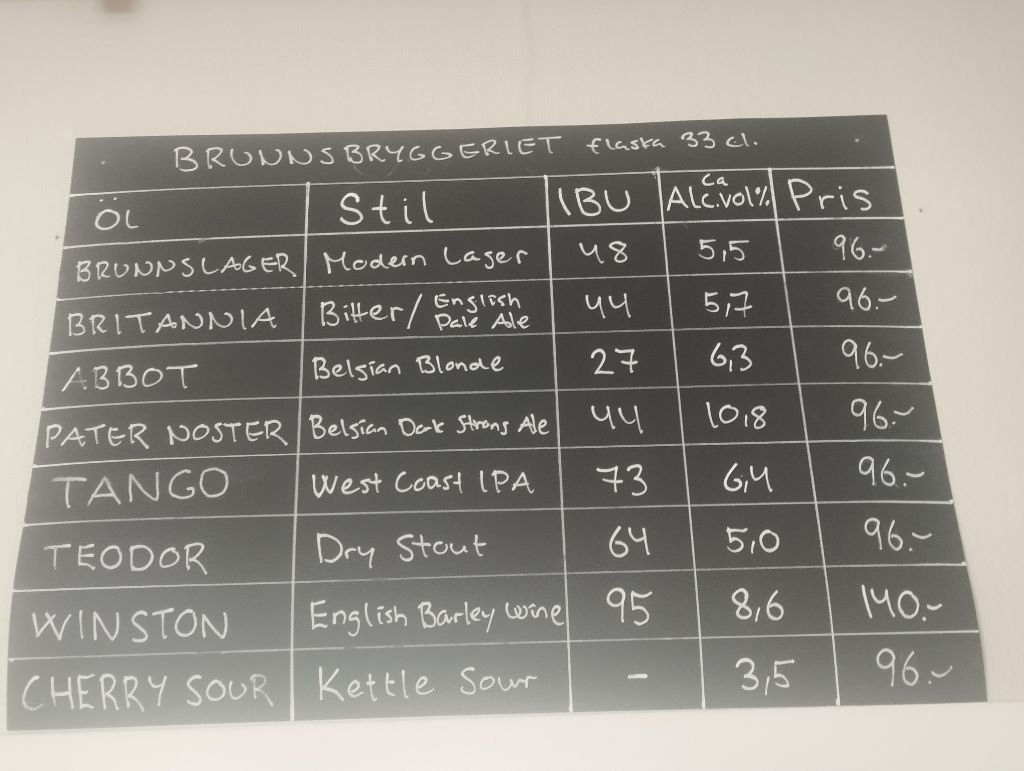 BRUNNSBRYGGERIET flaska 33 cl.
ÖL Stil IBU Ca Alc.vol% Pris
BRUNNSLAGER Modern Lager 48 5,5 96.-
BRITANNIA Bitter/ English Pale Ale 44 5,7 96.-
ABBOT Belgian Blonde 27 6,3 96.-
PATER NOSTER Belgian Dark Strong Ale 44 10,8 96.-
TANGO West Coast IPA 73 6,4 96.-
TEODOR Dry Stout 64 5,0 96.-
WINSTON English Barley wine 95 8,6 140.-
CHERRY SOUR Kettle Sour - 3,5 96.-